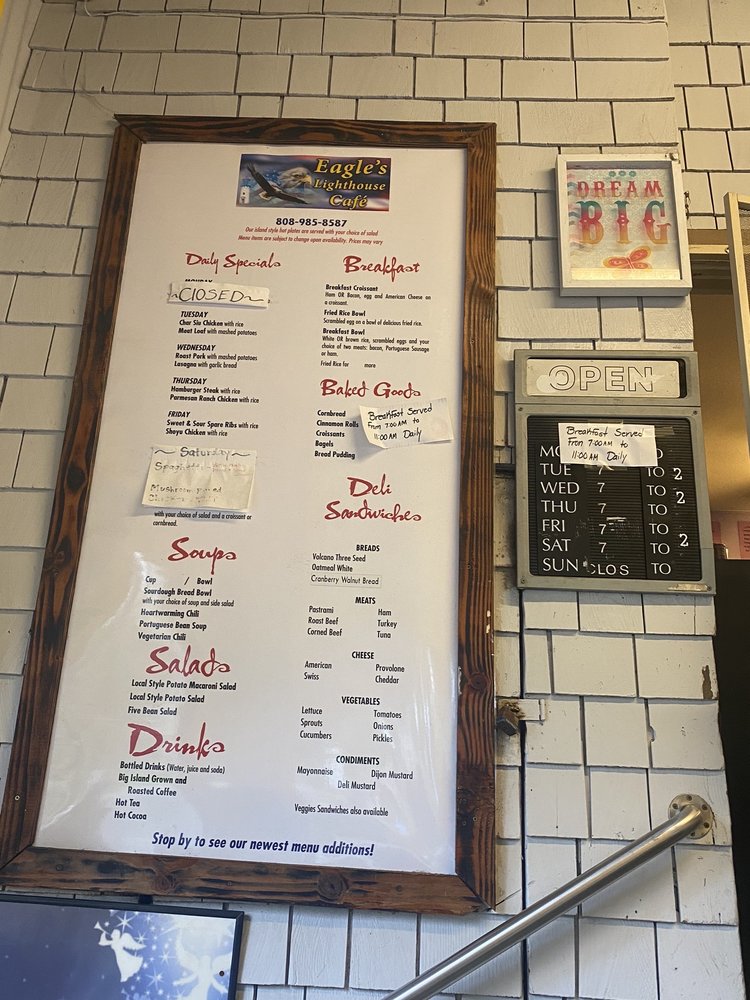 Eagle's
Lighthouse
Café
808-985-8587
Our island style hot plates are served with your choice of salad
Menu items are subject to change upon availability. Prices may vary
Daily Specials
~CLOSED~
TUESDAY
Char Siu Chicken with rice
Meat Loaf with mashed potatoes
WEDNESDAY
Roast Pork with mashed potatoes
Lasagna with garlic bread
THURSDAY
Hamburger Steak with rice
Parmesan Ranch Chicken with rice
FRIDAY
Sweet & Sour Spare Ribs with rice
Shoyu Chicken with rice
~ Saturday ~
with your choice of salad and a croissant or
cornbread.
Soups
Cup / Bowl
Sourdough Bread Bowl
with your choice of soup and side salad
Heartwarming Chili
Portuguese Bean Soup
Vegetarian Chili
Salads
Local Style Potato Macaroni Salad
Local Style Potato Salad
Five Bean Salad
Drinks
Bottled Drinks (Water, juice and soda)
Big Island Grown and
Roasted Coffee
Hot Tea
Hot Cocoa
Breakfast
Breakfast Croissant
Ham OR Bacon, egg and American Cheese on
a croissant.
Fried Rice Bowl
Scrambled egg on a bowl of delicious fried rice.
Breakfast Bowl
White OR brown rice, scrambled eggs and your
choice of two meats: bacon, Portuguese Sausage
or ham.
Fried Rice for more
Baked Goods
Cornbread
Cinnamon Rolls
Croissants
Bagels
Bread Pudding
Breakfast Served
From 7:00 AM to
11:00 AM Daily
Deli
Sandwiches
BREADS
Volcano Three Seed
Oatmeal White
Cranberry Walnut Bread
MEATS
Pastrami Ham
Roast Beef Turkey
Corned Beef Tuna
CHEESE
American Provolone
Swiss Cheddar
VEGETABLES
Lettuce Tomatoes
Sprouts Onions
Cucumbers Pickles
CONDIMENTS
Mayonnaise Dijon Mustard
Deli Mustard
Veggies Sandwiches also available
Stop by to see our newest menu additions!
DREAM
BIG
OPEN
Breakfast Served
From 7:00 AM to
11:00 AM Daily
TUE 7 TO 2
WED 7 TO 2
THU 7 TO
FRI 7 TO
SAT 7 TO 2
SUN CLOS TO